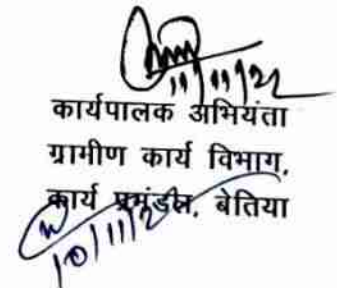 11/11/22
कार्यपालक अभियंता
ग्रामीण कार्य विभाग,
कार्य प्रमंडल, बेतिया
10/11/2